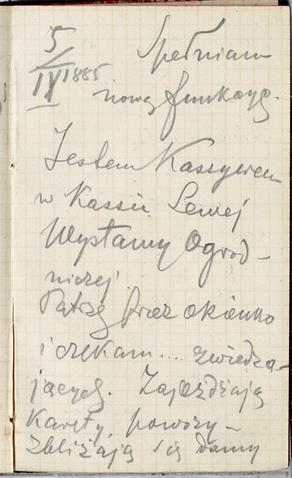 5/IX 1885 Spełniam
nową funkcyę.
Jestem Kassyerem
w Kassie Lewej
Wystawy Ogrod-
niczej
Patrzę przez okienko
i czekam... zwiedza-
jących. Zajeżdżają
Karety, powozy -
zbliżają się damy